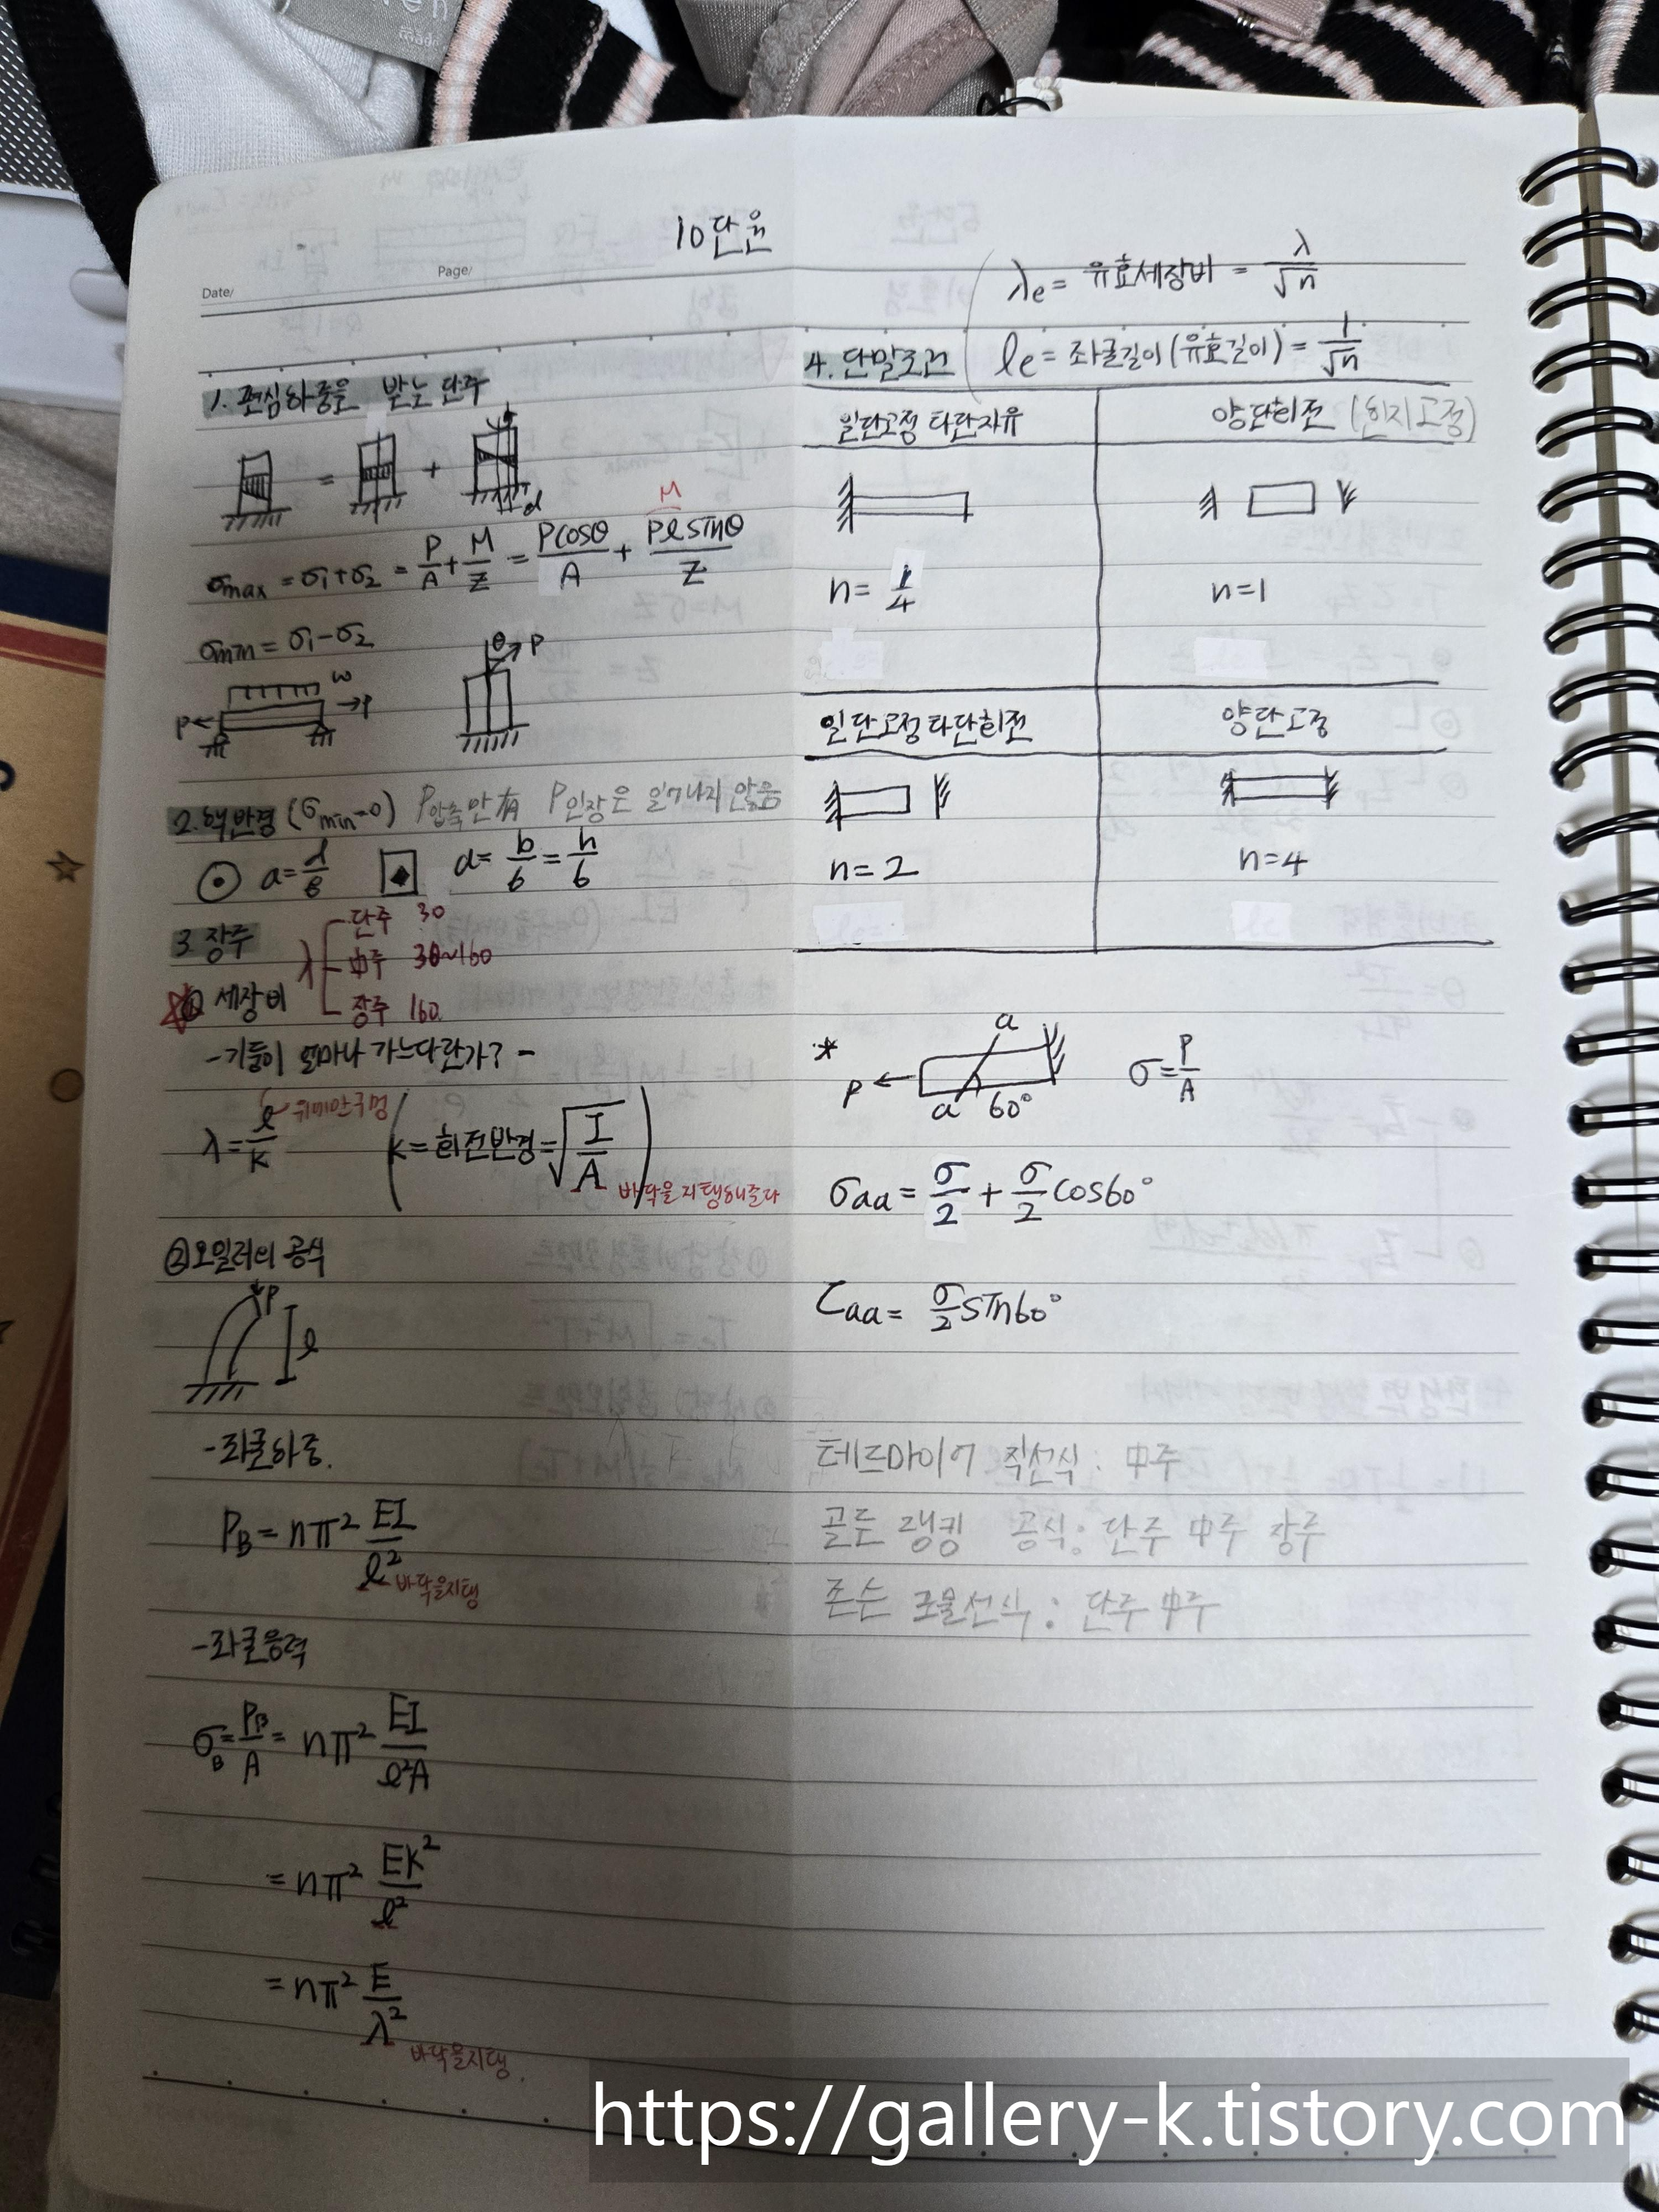 10단원
Date/
Page/
1. 편심하중을 받는 단주
= +
d
σmax = σ1+σ2 = P/A + M/Z = Pcosθ/A + Pℓsinθ/Z
M
σmin = σ1-σ2
w
P P
θ P
2. 핵반경 (σmin=0) P압축만 有 P인장은 일어나지 않음
a = d/8 a = b/6 = h/6
3. 장주
λ
단주 30
中주 30~160
장주 160
① 세장비
-기둥이 얼마나 가느다란가? -
λ = ℓ/K
(K = 회전반경 = √I/A)
바닥을 지탱해준다
② 오일러의 공식
P
ℓ
-좌굴하중.
PB = nπ² EI/ℓ²
바닥을지탱
-좌굴응력
σB = PB/A = nπ² EI/ℓ²A
= nπ² EK²/ℓ²
= nπ² E/λ²
바닥을지탱.
λe = 유효세장비 = λ/√n
4. 단말조건
ℓe = 좌굴길이(유효길이) = 1/√n
일단고정 타단자유
양단회전 (힌지고정)
n = 1/4
n=1
일단고정타단회전
양단고정
n=2
n=4
*
a
P
a 60°
σ = P/A
σaa = σ/2 + σ/2 cos60°
τaa = σ/2 sin60°
테트마이어 직선식 : 中주
골든 랭킹 공식: 단주 中주 장주
존슨 포물선식 : 단주 中주
https://gallery-k.tistory.com